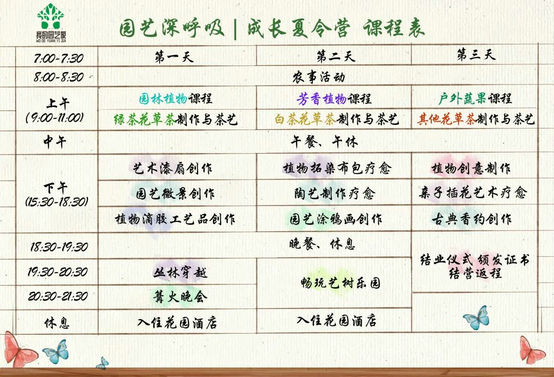 我的园艺家
园艺深呼吸 | 成长夏令营 课程表
7:00-7:30 第一天 第二天 第三天
8:00-8:30 农事活动
上午 (9:00-11:00) 园林植物课程 芳香植物课程 户外蔬果课程
绿茶花草茶制作与茶艺 白茶花草茶制作与茶艺 其他花草茶制作与茶艺
中午 午餐、午休
下午 (15:30-18:30) 艺术漆扇创作 植物拓染布包疗愈 植物创意制作
园艺微景创作 陶艺制作疗愈 亲子插花艺术疗愈
植物滴胶工艺品创作 园艺涂鸦画创作 古典香约创作
18:30-19:30 晚餐、休息
19:30-20:30 丛林穿越 畅玩艺树乐园 结业仪式 颁发证书
结营返程
20:30-21:30 篝火晚会
休息 入住花园酒店 入住花园酒店